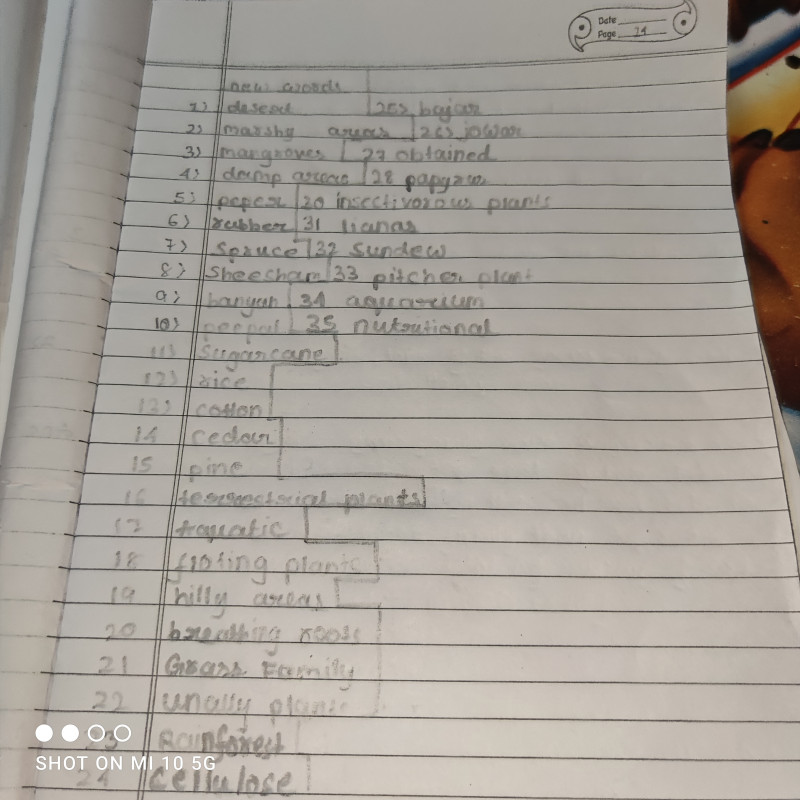 Date
Page 24
new words
1) desert 25) bajar
2) marshy areas 26) jowar
3) mangroves 27 obtained
4) damp areas 28 papyrus
5) peper 20 insectivorous plants
6) rubber 31 lianas
7) Spruce 32 Sundew
8) Sheesham 33 pitcher plant
9) banyan 34 aquarium
10) peepal 35 nutrutional
11) Sugarcane
12) rice
13) cotton
14 cedar
15 pine
16 terrectrial plants
17
18 floting plants
19 hilly areas
20 breathing roots
21 Grass Family
22 plants
23 Rainforest
24 cellulose
SHOT ON MI 10 5G